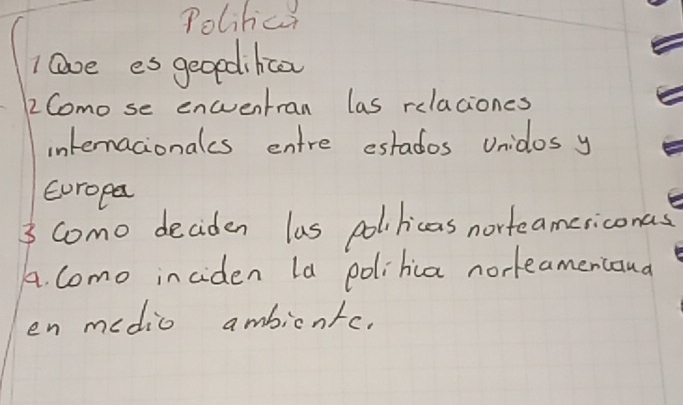 Politica
1 Que es geopolitica
2 Como se encuentran las relaciones
internacionales entre estados unidos y
Europa
3 Como deciden las politicas norteamericanas
4. Como inciden la politica norteamericana
en medio ambiente.